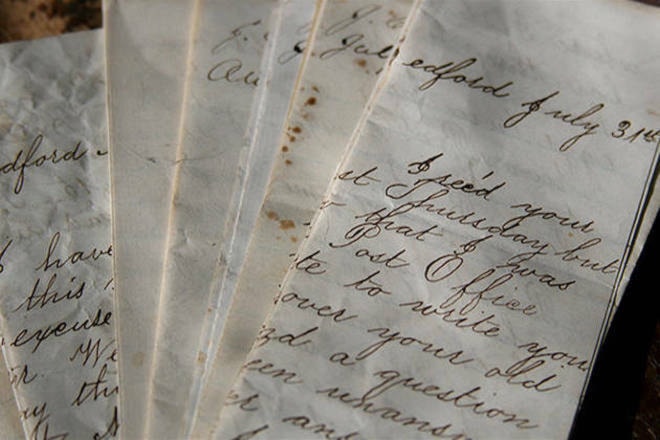 dford
have
this
excuse
We
J.
Au
J.
Jul
edford July 31st
I rec'd your
st Thursday but
that I was
Post Office
te to write you
over your old
a question
een unansw